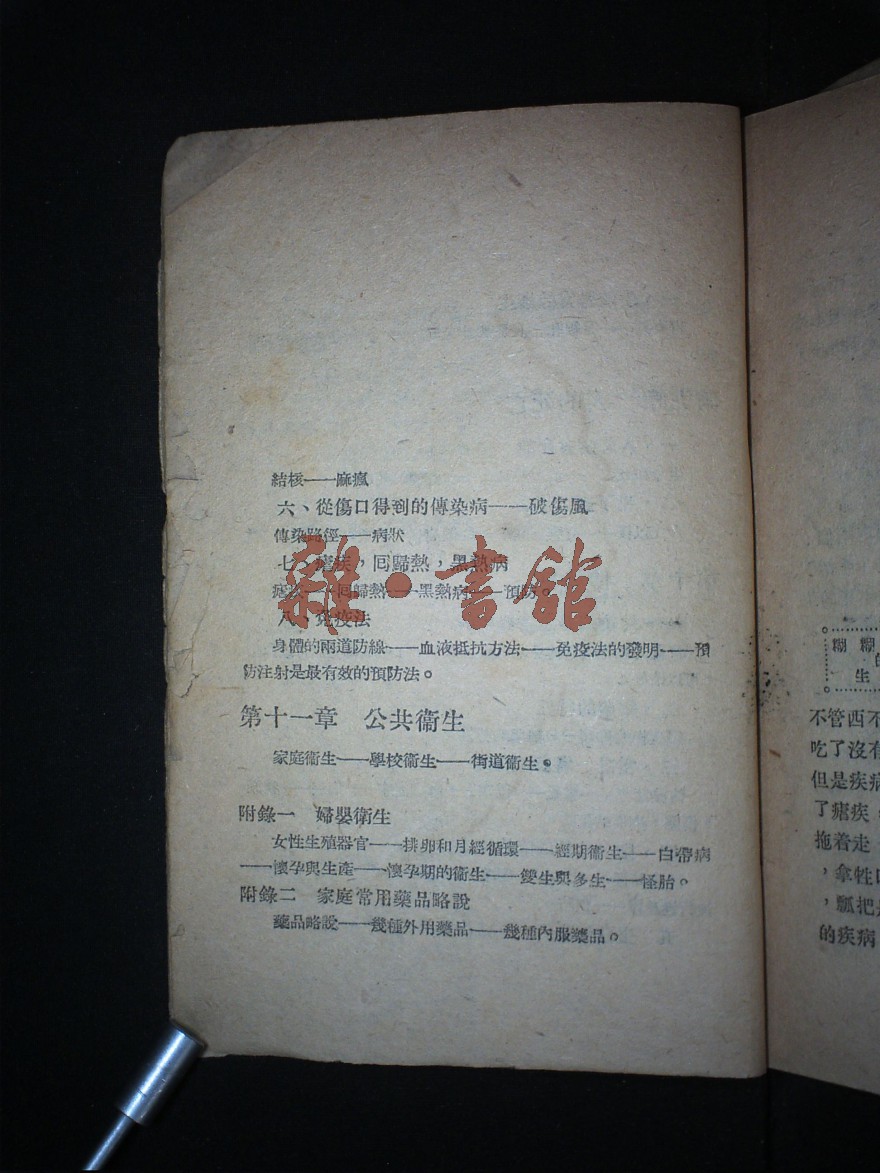 結核——麻瘋
六、從傷口得到的傳染病——破傷風
傳染路徑——病狀
七、瘧疾，回歸熱，黑熱病
瘧疾——回歸熱——黑熱病——預防。
八、免疫法
身體的兩道防線——血液抵抗方法——免疫法的發明——預
防注射是最有效的預防法。
第十一章 公共衞生
家庭衞生——學校衞生——街道衞生。
附錄一 婦嬰衞生
女性生殖器官——排卵和月經循環——經期衞生——白帶病
——懷孕與生產——懷孕期的衞生——雙生與多生——怪胎。
附錄二 家庭常用藥品略說
藥品略說——幾種外用藥品——幾種內服藥品。
雜·書舘
糊糊
生
不管西不
吃了沒有
但是疾病
了瘧疾，
拖着走
，拿牲口
，瓢把
的疾病